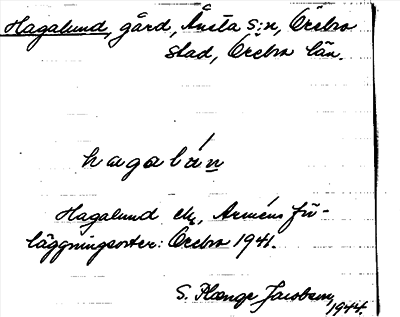 Hagalund, gård, Ånsta s:n, Örebro
stad, Örebro län.
hagalán
Hagalund ek, Arméns för-
läggningsorter: Örebro 1941.
S. Plænge Jacobson,
1944.